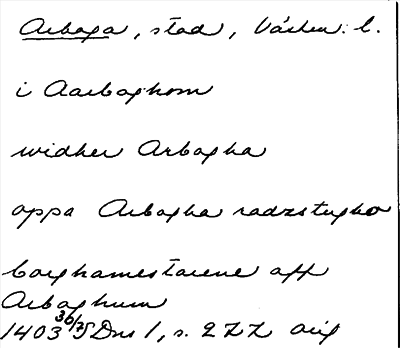 Arboga, stad, Västm. l.
i Aarboghom
widher Arbogha
oppa Arbogha radzstugho
borghamestarene aff
Arboghum
1403 30/3 SDns 1, s. 277 orig